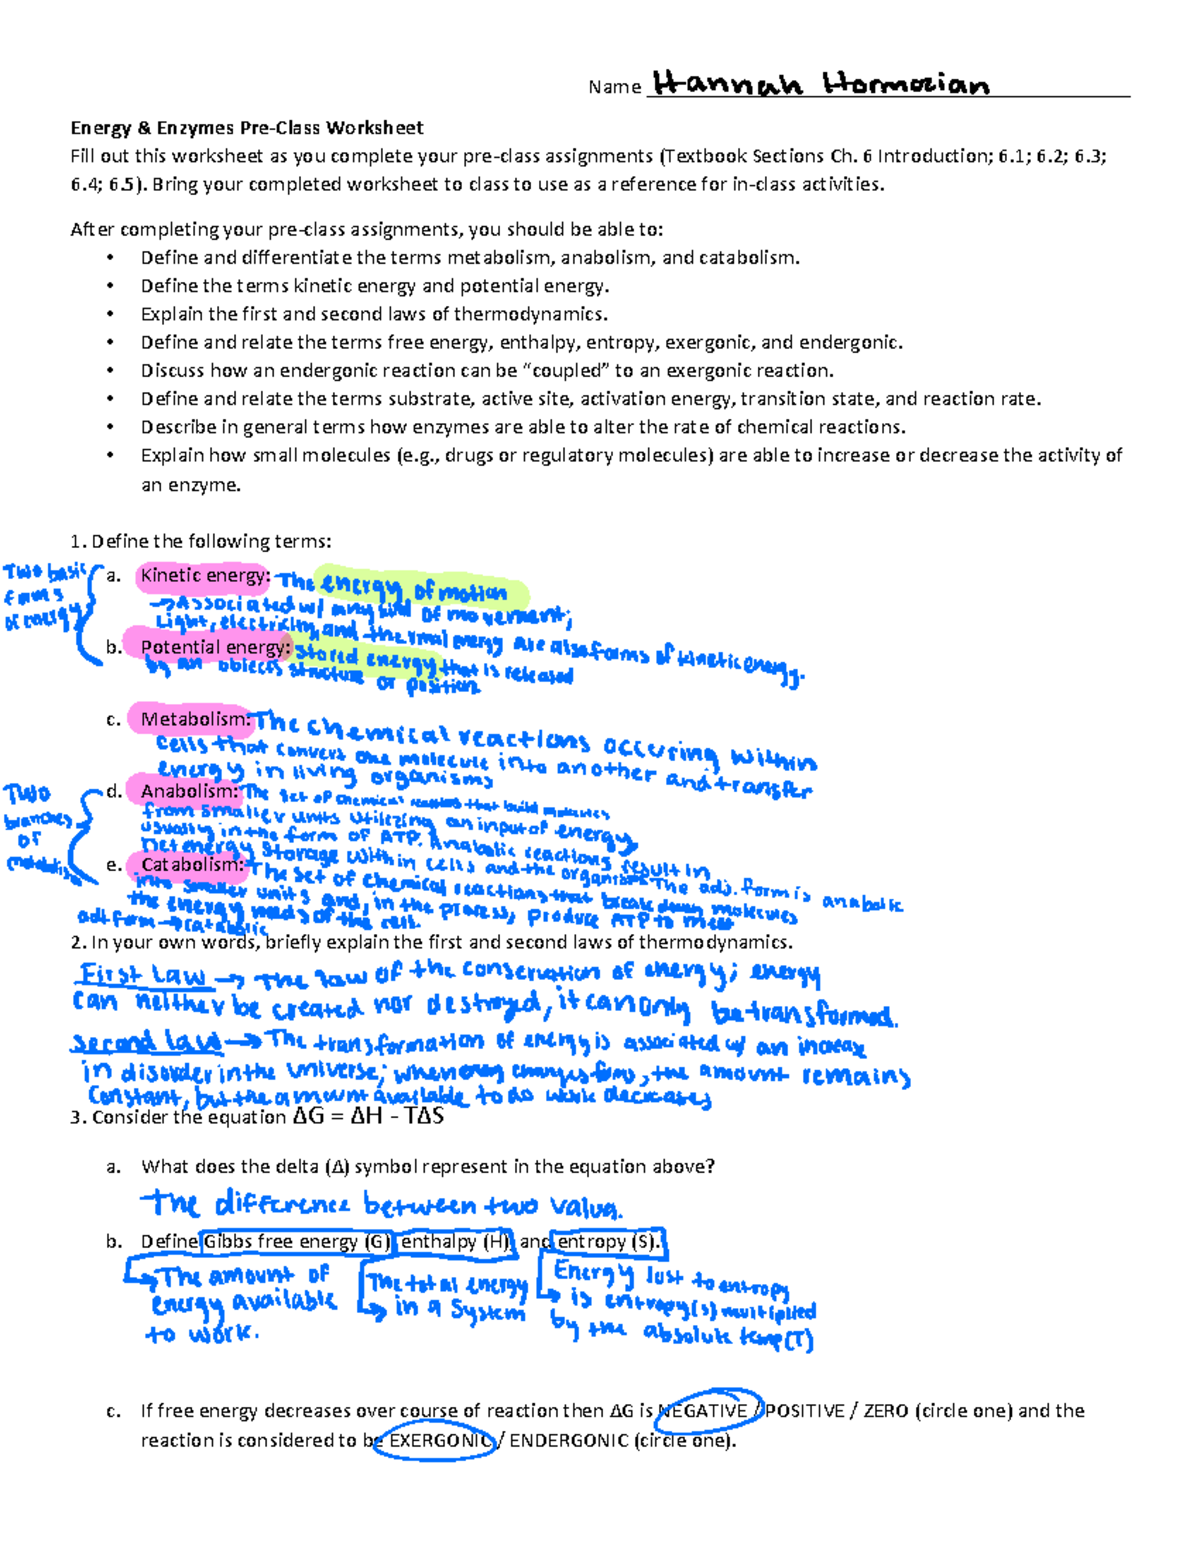 Name Hannah Hormozian
Energy & Enzymes Pre-Class Worksheet
Fill out this worksheet as you complete your pre-class assignments (Textbook Sections Ch. 6 Introduction; 6.1; 6.2; 6.3;
6.4; 6.5). Bring your completed worksheet to class to use as a reference for in-class activities.
After completing your pre-class assignments, you should be able to:
• Define and differentiate the terms metabolism, anabolism, and catabolism.
• Define the terms kinetic energy and potential energy.
• Explain the first and second laws of thermodynamics.
• Define and relate the terms free energy, enthalpy, entropy, exergonic, and endergonic.
• Discuss how an endergonic reaction can be “coupled” to an exergonic reaction.
• Define and relate the terms substrate, active site, activation energy, transition state, and reaction rate.
• Describe in general terms how enzymes are able to alter the rate of chemical reactions.
• Explain how small molecules (e.g., drugs or regulatory molecules) are able to increase or decrease the activity of
an enzyme.
1. Define the following terms:
Two basic
forms
of energy
a. Kinetic energy: The energy of motion
→Associated w/ any kind of movement;
Light, electricity, and thermal energy are also forms of kinetic energy.
b. Potential energy: stored energy that is released
by an objects structure
or position
c. Metabolism: The chemical reactions occuring within
cells that convert one molecule into another and transfer
energy in living organisms
Two
branches
of
d. Anabolism: The set of chemical reactions that build molecules
from smaller units utilizing an input of energy
usually in the form of ATP. Anabolic reactions result in
net energy storage within cells and the organism. The adj. form is anabolic
e. Catabolism: The set of chemical reactions that break down molecules
into smaller units and, in the process, produce ATP to meet
the energy needs of the cell.
adj. form → catabolic
2. In your own words, briefly explain the first and second laws of thermodynamics.
First Law → The law of the conservation of energy; energy
can neither be created nor destroyed, it can only be transformed.
Second law → The transformation of energy is associated w/ an increase
in disorder in the universe; when energy changes forms, the amount remains
constant, but the amount available to do work decreases
3. Consider the equation ΔG = ΔH - TΔS
a. What does the delta (Δ) symbol represent in the equation above?
The difference between two values.
b. Define Gibbs free energy (G), enthalpy (H), and entropy (S).
The amount of
energy available
to work.
The total energy
in a system
Energy lost to entropy
is entropy(S) multiplied
by the absolute temp(T)
c. If free energy decreases over course of reaction then ΔG is NEGATIVE / POSITIVE / ZERO (circle one) and the
reaction is considered to be EXERGONIC / ENDERGONIC (circle one).